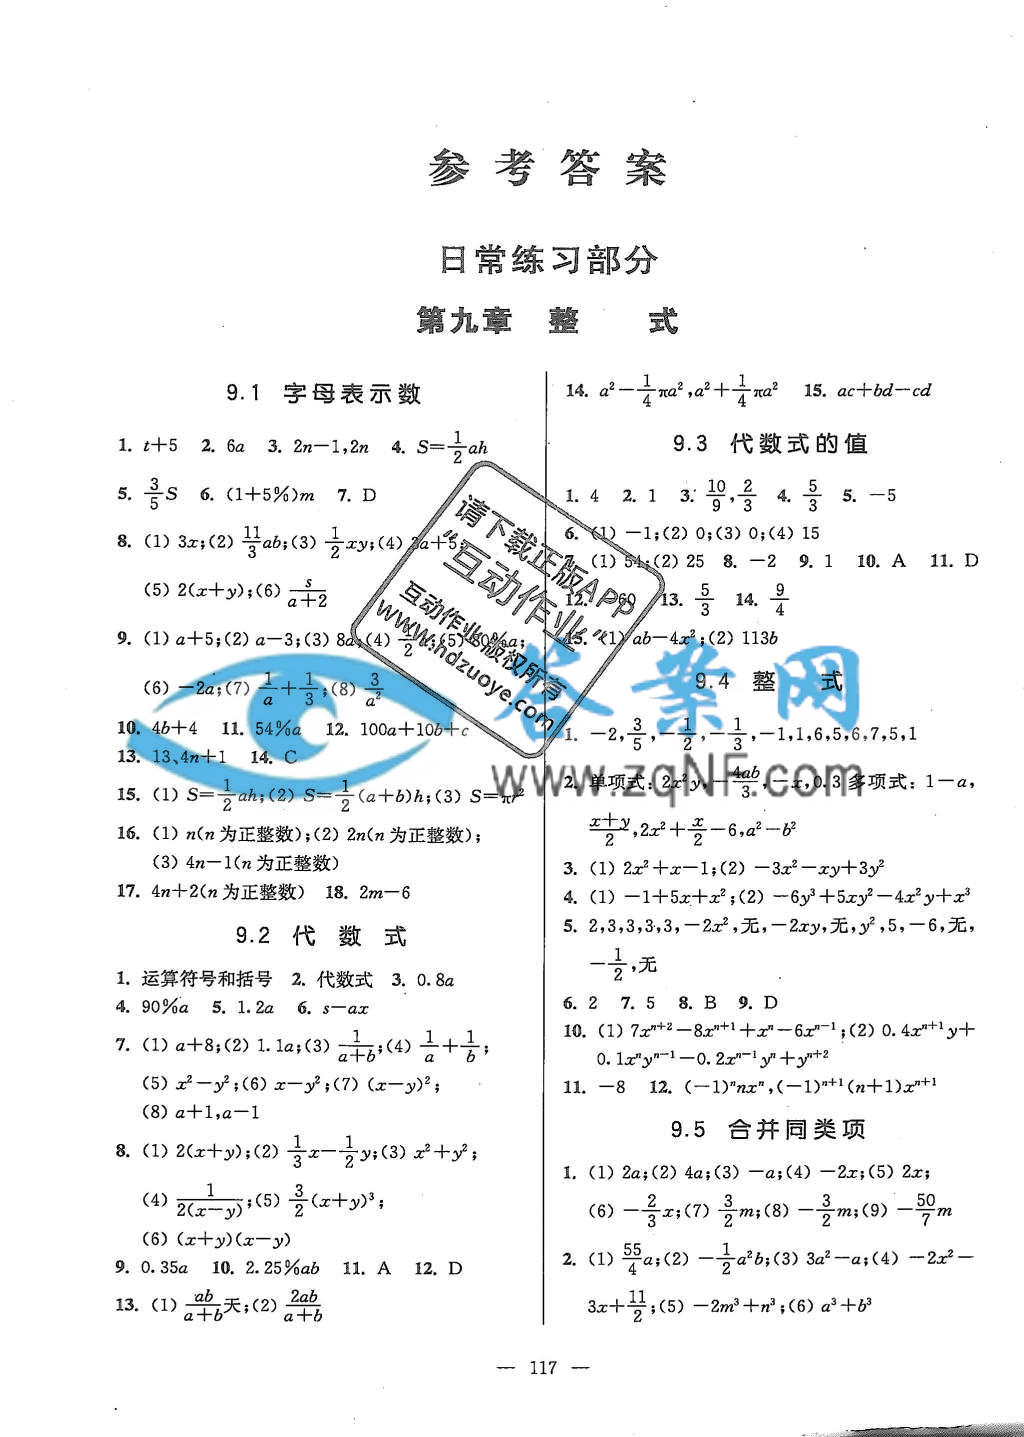 参考答案
日常练习部分
第九章 整 式
9.1 字母表示数
1. t+5 2. 6a 3. 2n-1,2n 4. S=1/2ah
5. 3/5S 6. (1+5%)m 7. D
8. (1) 3x;(2) 11/3ab;(3) 1/2xy;(4) 3a+5;
(5) 2(x+y);(6) s/(a+2)
9. (1) a+5;(2) a-3;(3) 8a;(4)
(6) -2a;(7) 1/a+1/3;(8) 3/a²
10. 4b+4 11. 54%a 12. 100a+10b+c
13. 13、4n+1 14. C
15. (1) S=1/2ah;(2) S=1/2(a+b)h;(3) S=πr²
16. (1) n(n为正整数);(2) 2n(n为正整数);
(3) 4n-1(n为正整数)
17. 4n+2(n为正整数) 18. 2m-6
9.2 代 数 式
1. 运算符号和括号 2. 代数式 3. 0.8a
4. 90%a 5. 1.2a 6. s-ax
7. (1) a+8;(2) 1.1a;(3) 1/(a+b);(4) 1/a+1/b;
(5) x²-y²;(6) x-y²;(7) (x-y)²;
(8) a+1,a-1
8. (1) 2(x+y);(2) 1/3x-1/2y;(3) x²+y²;
(4) 1/2(x-y);(5) 3/2(x+y)³;
(6) (x+y)(x-y)
9. 0.35a 10. 2.25%ab 11. A 12. D
13. (1) ab/(a+b)天;(2) 2ab/(a+b)
14. a²-1/4πa²,a²+1/4πa² 15. ac+bd-cd
9.3 代数式的值
1. 4 2. 1 3. 10/9,2/3 4. 5/3 5. -5
6. (1) -1;(2) 0;(3) 0;(4) 15
7. (1) 54;(2) 25 8. -2 9. 1 10. A 11. D
12. 60 13. 5/3 14. 9/4
15. (1) ab-4x²;(2) 113b
9.4 整 式
1. -2,3/5,-1/2,-1/3,-1,1,6,5,6,7,5,1
2. 单项式:2x²y,-4ab/3,-x,0.3 多项式:1-a,
(x+y)/2,2x²+x/2-6,a²-b²
3. (1) 2x²+x-1;(2) -3x²-xy+3y²
4. (1) -1+5x+x²;(2) -6y³+5xy²-4x²y+x³
5. 2,3,3,3,3,-2x²,无,-2xy,无,y²,5,-6,无,
-1/2,无
6. 2 7. 5 8. B 9. D
10. (1) 7xⁿ⁺²-8xⁿ⁺¹+xⁿ-6xⁿ⁻¹;(2) 0.4xⁿ⁺¹y+
0.1xⁿyⁿ⁻¹-0.2xⁿ⁻¹yⁿ+yⁿ⁺²
11. -8 12. (-1)ⁿnxⁿ,(-1)ⁿ⁺¹(n+1)xⁿ⁺¹
9.5 合并同类项
1. (1) 2a;(2) 4a;(3) -a;(4) -2x;(5) 2x;
(6) -2/3x;(7) 3/2m;(8) -3/2m;(9) -50/7m
2. (1) 55/4a;(2) -1/2a²b;(3) 3a²-a;(4) -2x²-
3x+11/2;(5) -2m³+n³;(6) a³+b³
— 117 —
请下载正版APP
“互动作业”
互动作业版权所有
www.hdzuoye.com
答案网
www.zqNF.com